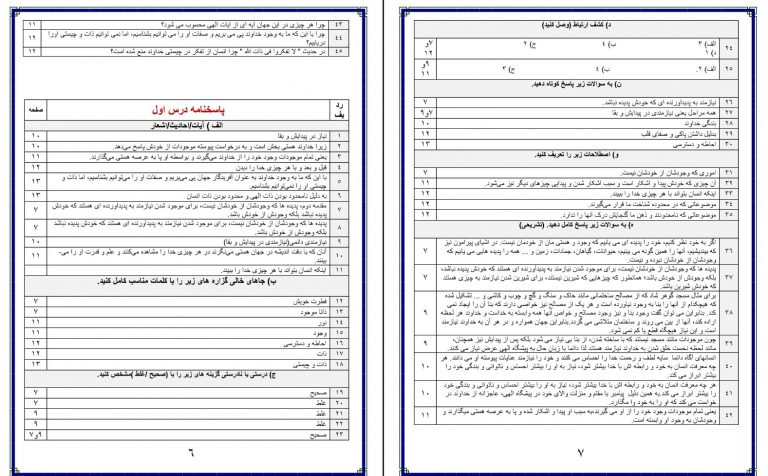 ۴۳ چرا هر چیزی در این جهان آیه ای از آیات الهی محسوب می شود؟ ۱۱
۴۴ چرا با این که ما به وجود خداوند پی می بریم و صفات او را می توانیم بشناسیم، اما نمی توانیم ذات و چیستی اورا دریابیم؟ ۱۲
۴۵ در حدیث " لا تفکروا فی ذات الله " چرا انسان از تفکر در چیستی خداوند منع شده است؟ ۱۲
ردیف پاسخنامه درس اول صفحه
الف ) آیات/احادیث/اشعار
۱ نیاز در پیدایش و بقا ۱۰
۲ زیرا خداوند هستی بخش است و به درخواست پیوسته موجودات از خودش پاسخ می‌دهد. ۱۰
۳ یعنی تمام موجودات وجود خود را از خداوند می‌گیرند و بواسطه او پا به عرصه هستی می‌گذارند. ۱۱
۴ قبل و بعد و با هر چیزی خدا را دیدن ۱۲
۵ با این که ما به وجود خداوند به عنوان آفریدگار جهان پی می‌بریم و صفات او را می‌توانیم بشناسیم، اما ذات و
چیستی او را نمی‌توانیم بشناسیم. ۱۳
۶ به دلیل نامحدود بودن ذات الهی و محدود بودن ذات انسان ۱۳
۷ مقدمه دوم، پدیده ها که وجودشان از خودشان نیست، برای موجود شدن نیازمند به پدیدآورنده ای هستند که خودش
پدیده نباشد بلکه وجودش از خودش باشد. ۷
۸ پدیده ها که وجودشان از خودشان نیست، برای موجود شدن نیازمند به پدیدآورنده ای هستند که خودش پدیده نباشد
بلکه وجودش از خودش باشد. ۷
۹ نیازمندی دائمی(نیازمندی در پیدایش و بقا) ۱۰
۱۰ آنان که با دقت اندیشه در جهان هستی می‌نگرند در هر چیزی خدا را مشاهده می‌کنند و علم و قدرت او را می‌بینند. ۱۱
۱۱ اینکه انسان بتواند با هر چیزی خدا را ببیند. ۱۱
ب) جاهای خالی گزاره های زیر را با کلمات مناسب کامل کنید.
۱۲ فطرت خویش ۷
۱۳ ذاتا موجود ۷
۱۴ نور ۱۱
۱۵ وجود ۱۱
۱۶ احاطه و دسترسی ۱۲
۱۷ ذات ۱۲
۱۸ ذات و چیستی ۱۳
ج) درستی یا نادرستی گزینه های زیر را با (صحیح /غلط )مشخص کنید.
۱۹ صحیح ۷
۲۰ غلط ۷
۲۱ غلط ۹
۲۲ غلط ۹
۲۳ صحیح ۷و۹
۶
د) کشف ارتباط (وصل کنید)
۲۴ الف) ۳ ب) ۴ ج) ۲ د) ۱
۲۵ الف) ۲. ب) ۴ ج) ۳
ن) به سوالات زیر پاسخ کوتاه دهید.
۲۶ نیازمند به پدیداورنده ای که خودش پدیده نباشد. ۷
۲۷ همه مراحل یعنی نیازمندی در پیدایش و بقا ۷و۹
۲۸ بندگی خداوند ۱۰
۲۹ بدلیل داشتن پاکی و صفای قلب ۱۲
۳۰ احاطه و دسترسی ۱۲
و) اصطلاحات زیر را تعریف کنید.
۳۱ اموری که وجودشان از خودشان نیست. ۷
۳۲ آن چیزی که خودش پیدا و آشکار است و سبب آشکار شدن و پیدایی چیزهای دیگر نیز می‌شود. ۱۱
۳۳ اینکه انسان بتواند با هر چیزی خدا را ببیند. ۱۲
۳۴ موضوعاتی که در محدوده شناخت ما قرار می‌گیرند. ۱۲
۳۵ موضوعاتی که نامحدودند و ذهن ما گنجایش درک آنها را ندارد. ۱۲
ه) به سوالات زیر پاسخ کامل دهید. (تشریحی)
۳۶ اگر به خود نظر کنیم، خود را پدیده ای می یابیم که وجود و هستی مان از خودمان نیست. در اشیای پیرامون نیز
که بیندیشیم، آنها را همین گونه می بینیم، حیوانات، گیاهان، جمادات، زمین و ... همه را پدیده هایی می یابیم که
وجودشان از خودشان نبوده و نیست. ۷
۳۷ پدیده ها که وجودشان از خودشان نیست، برای موجود شدن نیازمند به پدیدآورنده ای هستند که خودش پدیده نباشد،
که خودش شیرین باشد. ۷
۳۸ برای مثال مسجد گوهر شاد که از مصالح ساختمانی مانند خاک و سنگ و گچ و چوب و کاشی و ... تشکیل شده
است و این نیاز هیچگاه قطع یا کم نمی شود. ۹
۳۹ چون موجودات مانند مسجد نیستند که با ساخته شدن، از بنا بی نیاز می شود بلکه پس از پیدایش نیز همچنان،
مانند لحظه نخست خلق شدن به خداوند نیازمند هستند لذا دائما با زبان حال به پیشگاه الهی عرض نیاز می کنند. ۹
۴۰ انسانهای آگاه دائما سایه لطف و رحمت خدا را احساس می کنند و خود را نیازمند عنایات پیوسته او می دانند. هر
چه معرفت انسان به خود و رابطه اش با خدا بیشتر شود، نیاز به او را بیشتر احساس و ناتوانی و بندگی خود را
بیشتر ابراز می کند. ۱۰
۴۱ هر چه معرفت انسان به خود و رابطه اش با خدا بیشتر شود، نیاز به او را بیشتر احساس و ناتوانی و بندگی خود
را بیشتر ابراز می کند.به همین دلیل پیامبر با مقام و منزلت والای خود در پیشگاه الهی، عاجزانه از خداوند در
خواست می کند که او را به خود وا مگذارد. ۱۰
۴۲ یعنی تمام موجودات وجود خود را از او می گیرند،به سبب او پیدا و آشکار شده و پا به عرصه هستی میگذارند و
وجودشان به وجود او وابسته است. ۱۱
۷